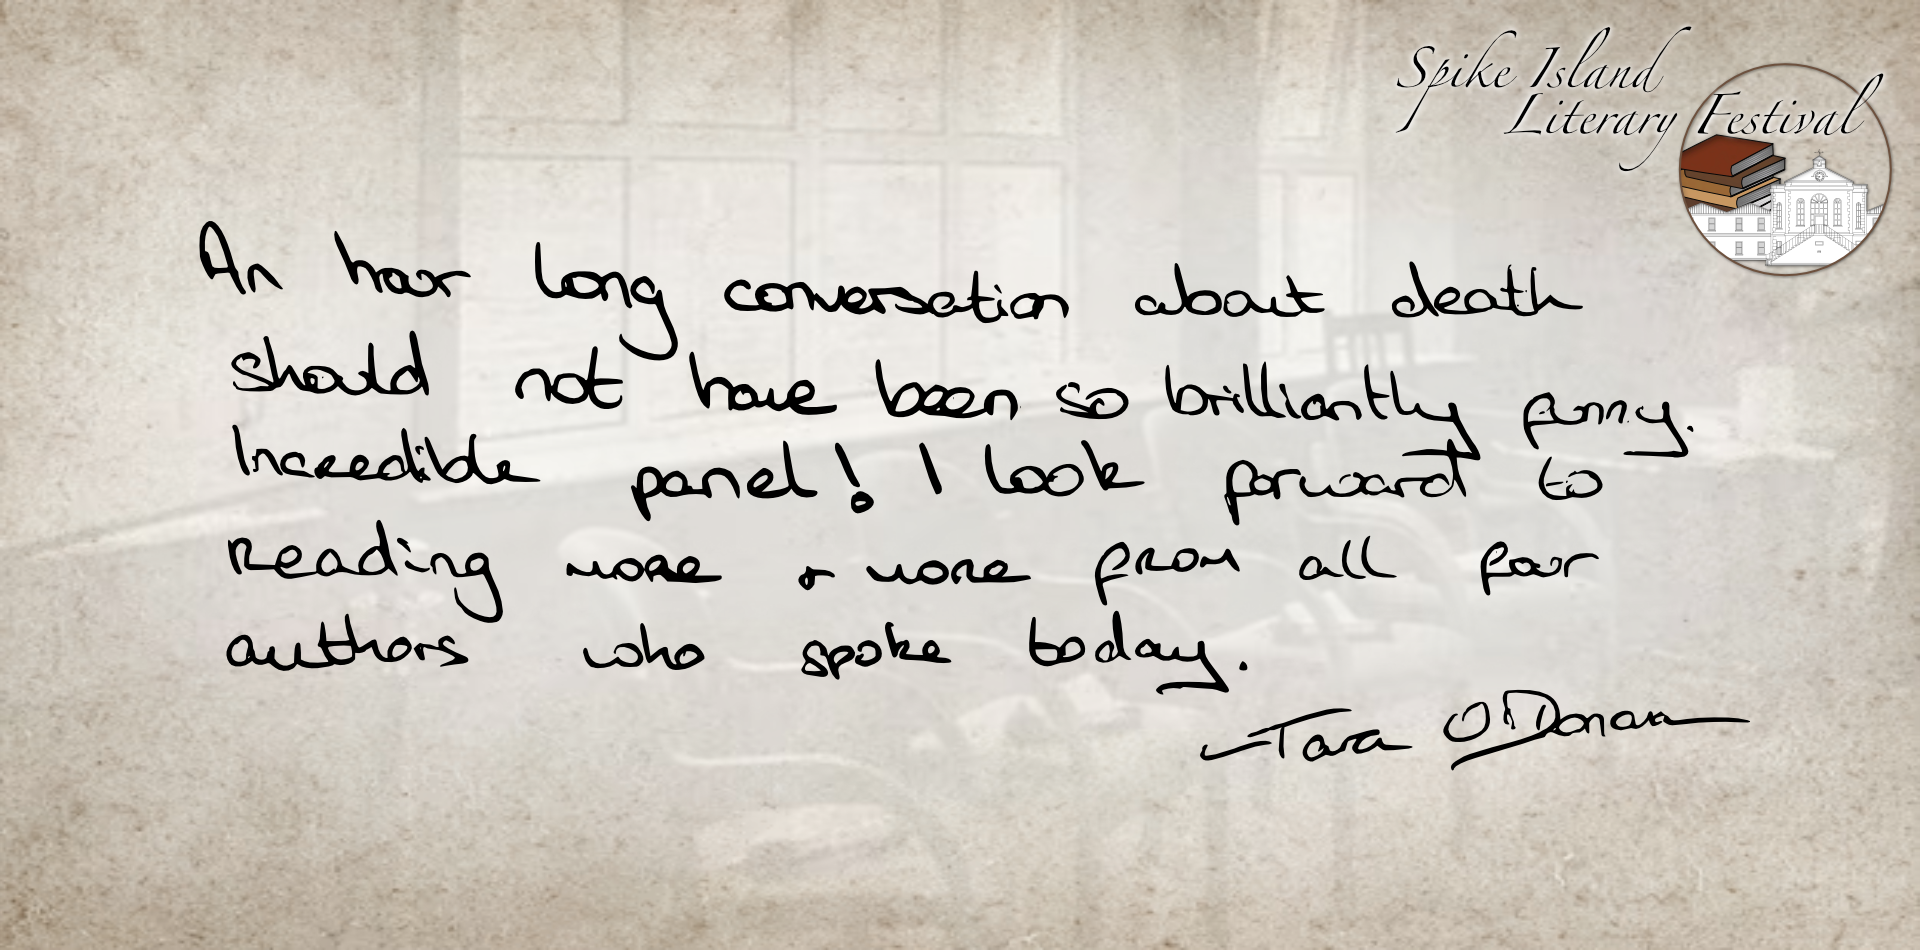 Spike Island
Literary Festival
An hour long conversation about death
should not have been so brilliantly funny.
Incredible panel! I look forward to
reading more & more from all four
authors who spoke today.
- Tara O'Donovan